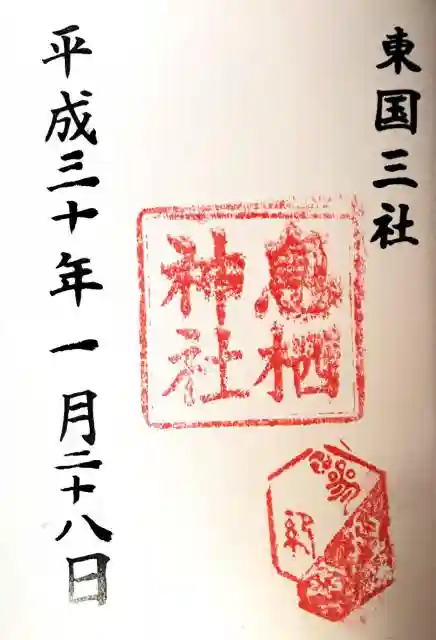 東国三社
息栖
神社
平成三十年一月二十八日